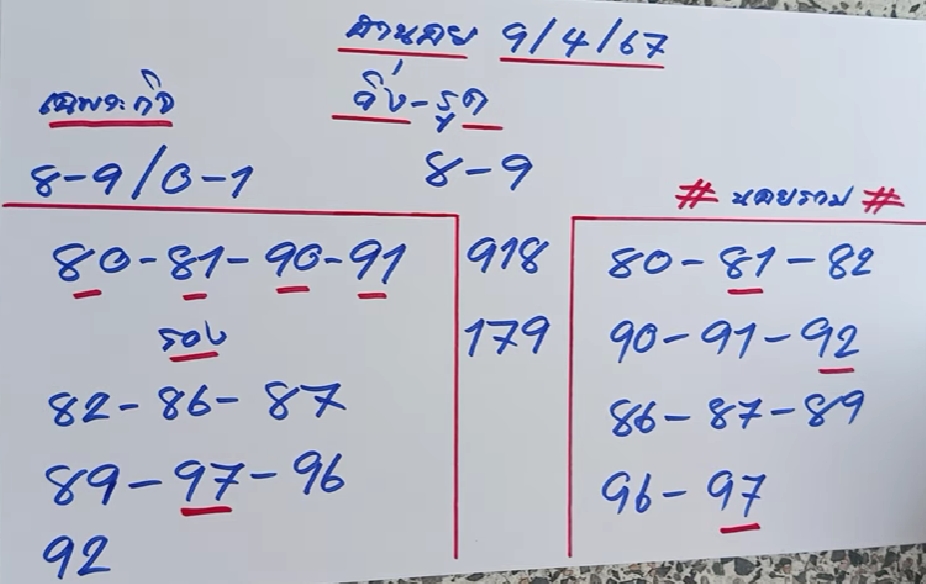 ฮานอย 9/4/67
เฉพาะกิจ
วิ่ง-รูด
8-9/0-1
8-9
# นอยรวม #
80-81-90-91
918
80-81-82
รอง
179
90-91-92
82-86-87
86-87-89
89-97-96
96-97
92